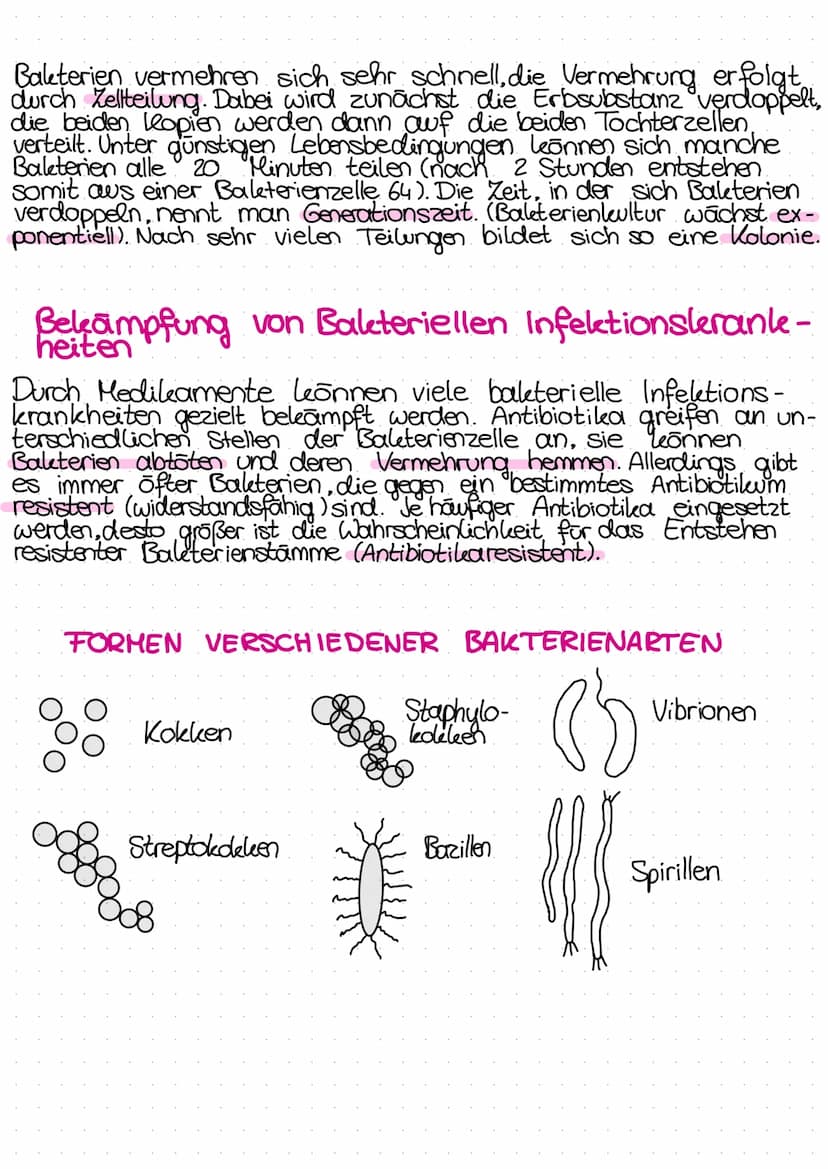 Bakterien vermehren sich sehr schnell, die Vermehrung erfolgt
durch Zellteilung. Dabei wird zunächst die Erbsubstanz verdoppelt,
die beiden Kopien werden dann auf die beiden Tochterzellen
verteilt. Unter günstigen Lebensbedingungen können sich manche
Bakterien alle 20 Minuten teilen (nach 2 Stunden entstehen
somit aus einer Bakterienzelle 64). Die Zeit, in der sich Bakterien
verdoppeln, nennt man Generationszeit. (Bakterienkultur wächst ex-
ponentiell). Nach sehr vielen Teilungen bildet sich so eine Kolonie.
Bekämpfung von Bakteriellen Infektionskrank-
heiten
Durch Medikamente können viele bakterielle Infektions-
krankheiten gezielt bekämpft werden. Antibiotika greifen an un-
terschiedlichen Stellen der Bakterienzelle an, sie können
Bakterien abtöten und deren Vermehrung hemmen. Allerdings gibt
es immer öfter Bakterien, die gegen ein bestimmtes Antibiotikum
resistent (widerstandsfähig) sind. Je häufiger Antibiotika eingesetzt
werden, desto größer ist die Wahrscheinlichkeit für das Entstehen
resistenter Bakterienstämme (Antibiotikaresistent).
FORMEN VERSCHIEDENER BAKTERIENARTEN
Kokken
Staphylo-
kokken
Vibrionen
Streptokokken
Bazillen
Spirillen